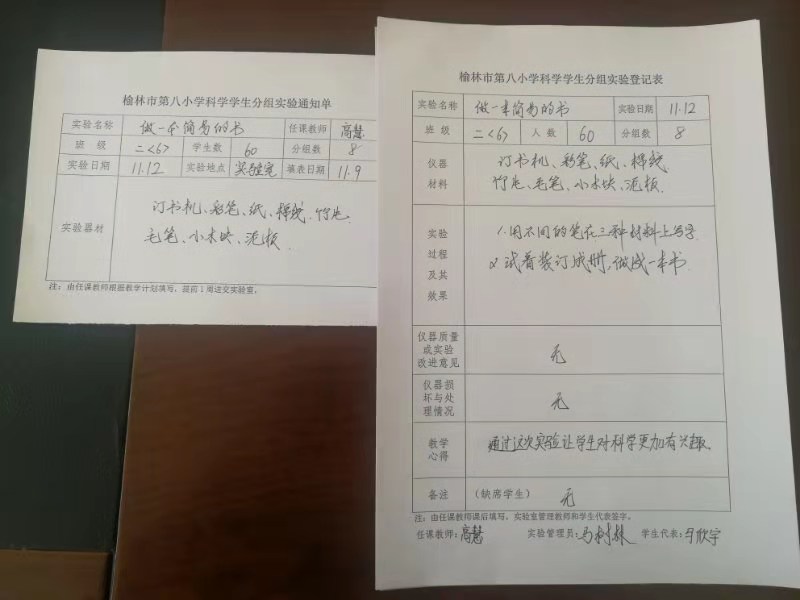 榆林市第八小学科学学生分组实验通知单
实验名称 做一本简易的书 任课教师 高慧
班 级 二<6> 学生数 60 分组数 8
实验日期 11.12 实验地点 实验室 填表日期 11.9
实验器材
订书机、彩笔、纸、棉线、竹片
毛笔、小木块、泥板
注：由任课教师根据教学计划填写，提前1周送交实验室。
榆林市第八小学科学学生分组实验登记表
实验名称 做一本简易的书 实验日期 11.12
班 级 二<6> 人 数 60 分组数 8
仪器
材料
订书机、彩笔、纸、棉线
竹片、毛笔、小木块、泥板
实验
过程
及其
效果
1.用不同的笔在三种材料上写字
2 试着装订成册，做成一本书
仪器质量
或实验
改进意见
无
仪器损
坏与处
理情况
无
教学
心得
通过这次实验让学生对科学更加有兴趣
备注 （缺席学生） 无
注：由任课教师课后填写，实验室管理教师和学生代表签字。
任课教师：高慧 实验管理员：马树林 学生代表：